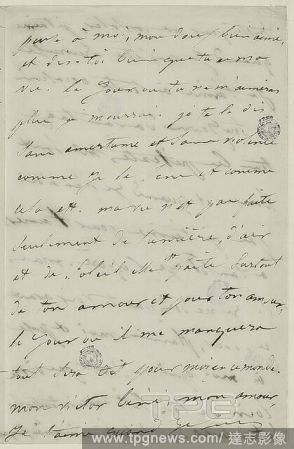 pense à moi, mon doux bien aimé,
et dis-toi bien que tu es ma
vie. Le jour où tu ne m'aimeras
plus je mourrai. je te le dis
sans amertume et sans
comme je le et comme
cela est. ma vie n'est pas faite
seulement de lumière, d'air
et de soleil elle est faite surtout
de ton amour et pour ton amour,
le jour où il me manquera
tout sera dit pour moi en ce monde.
mon victor béni, mon amour
Je t'aime
TPG
www.tpgnews.com / 達志影像